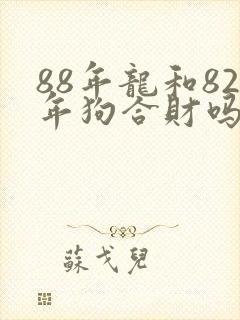 88年龍和82
年狗合財嗎
蘇戈兒